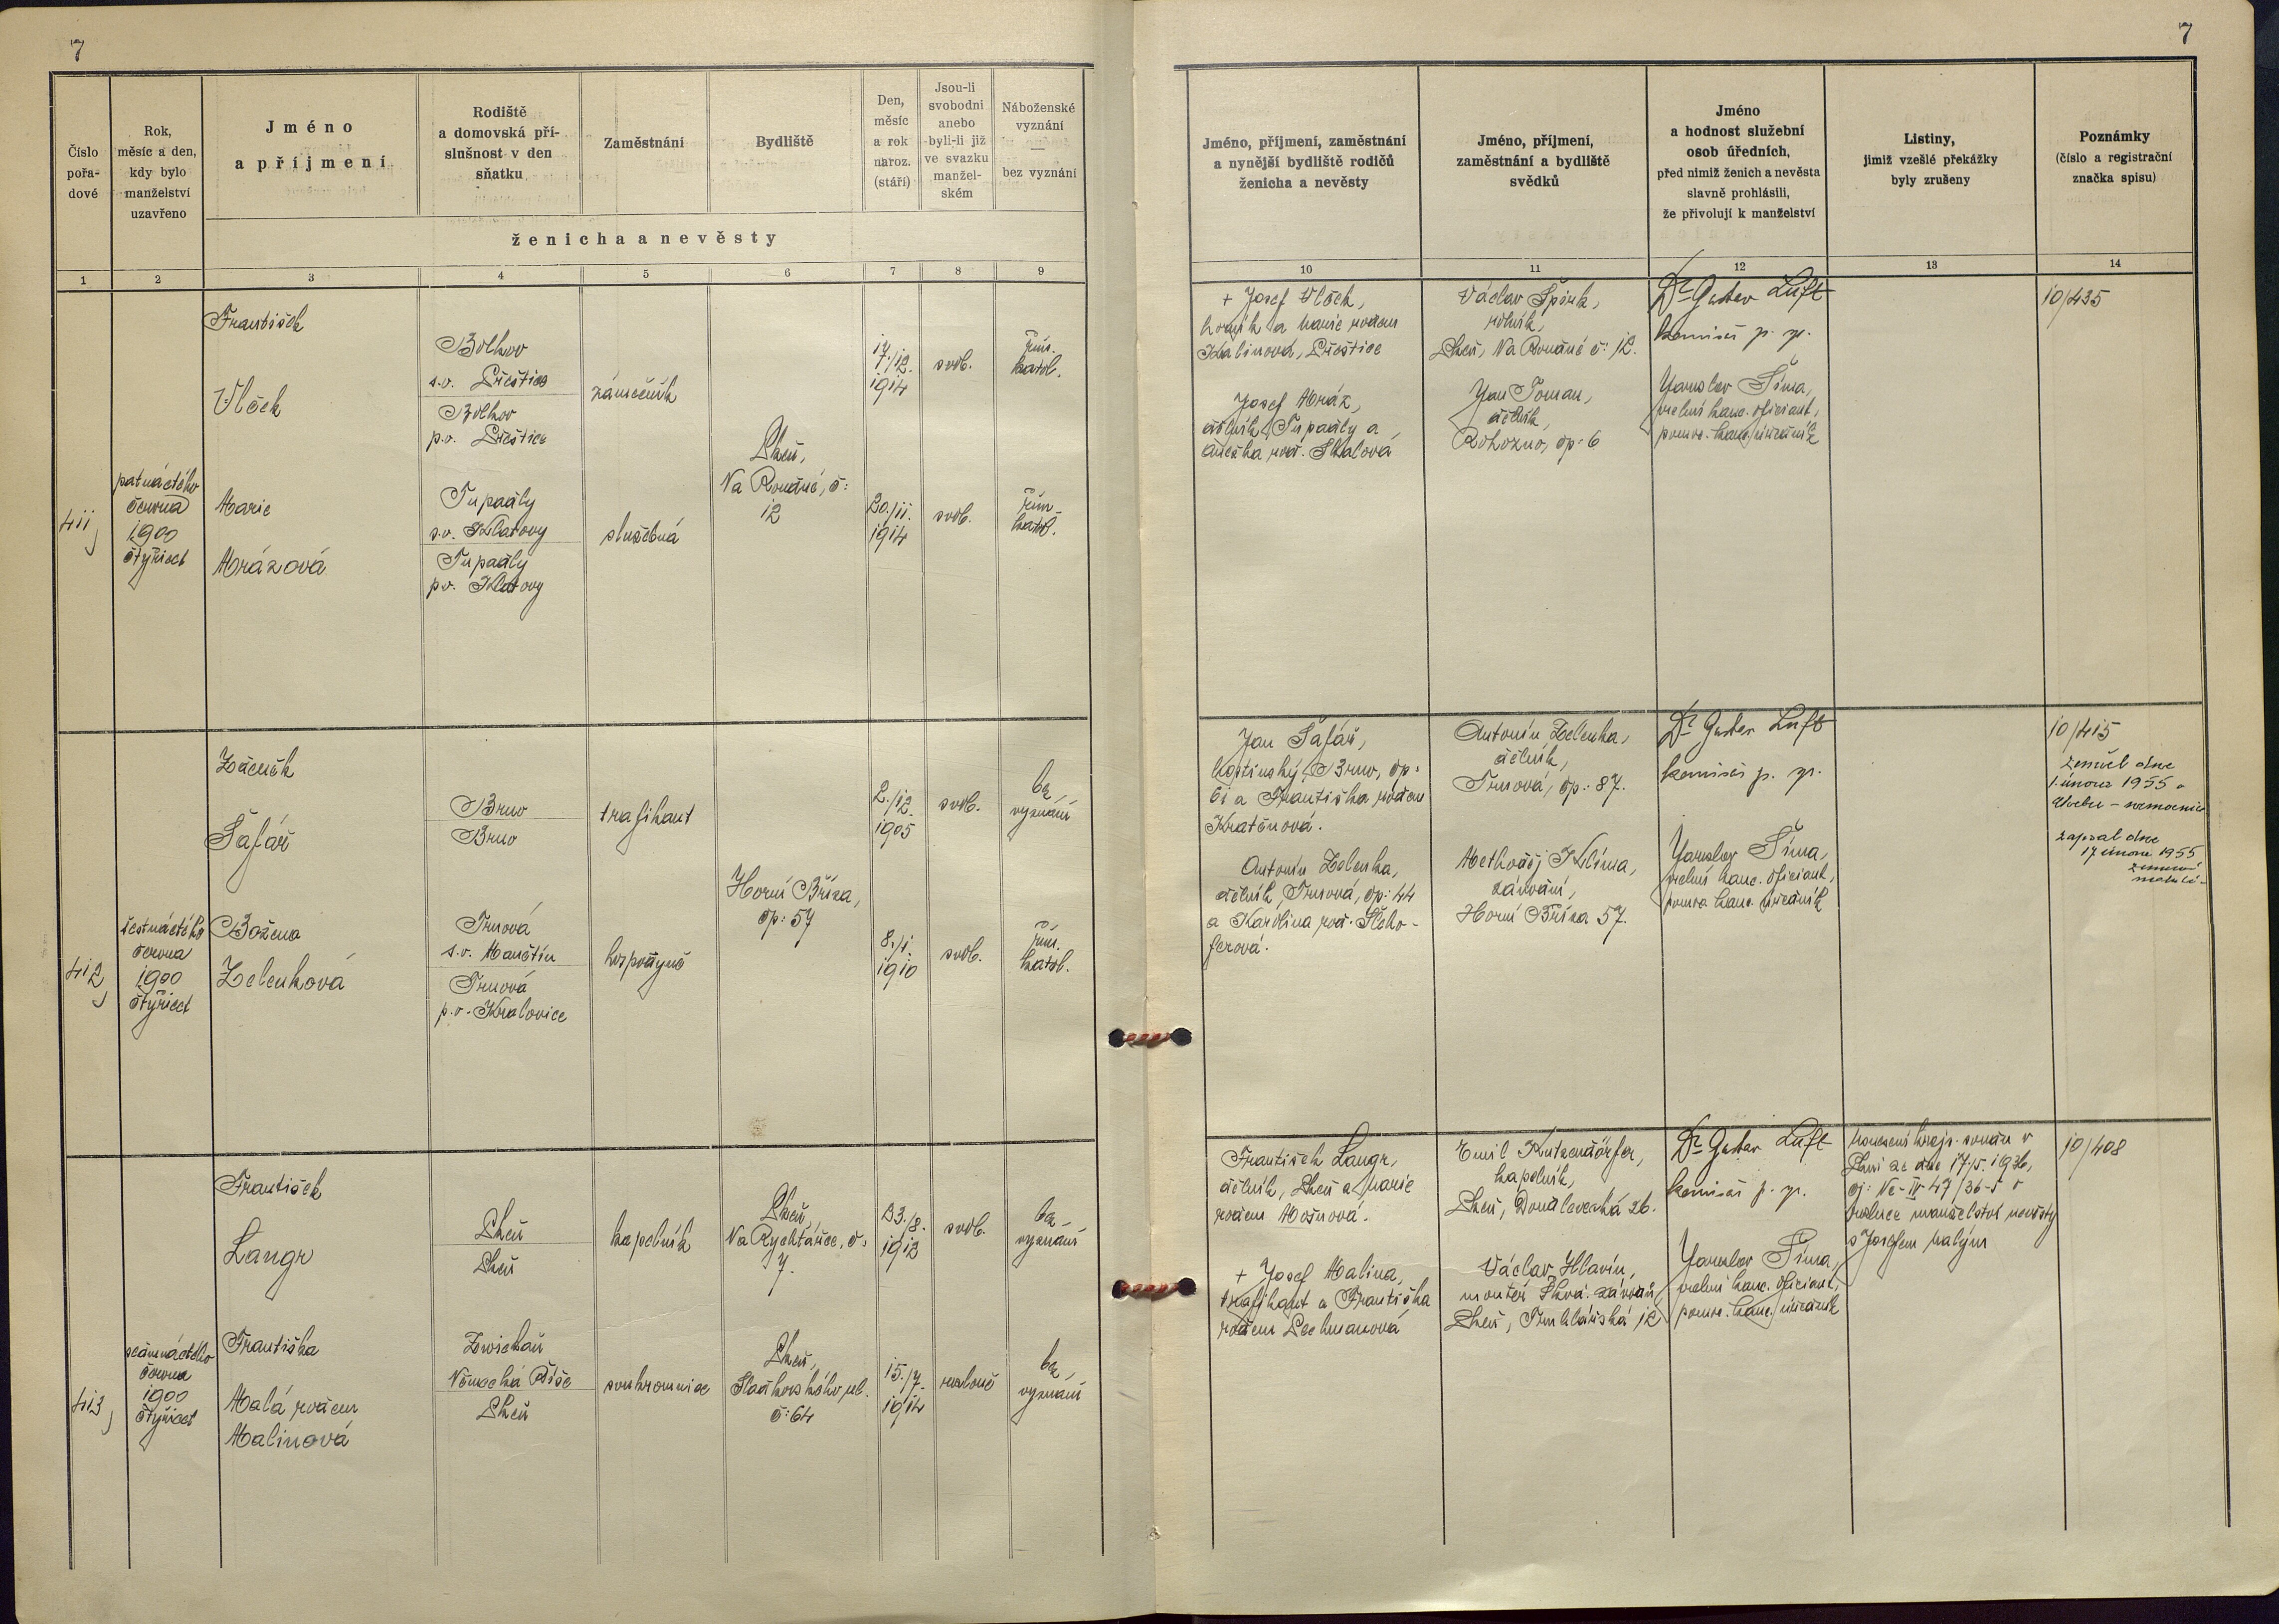 7
7
Číslo
pořa-
dové
Rok,
měsíc a den,
kdy bylo
manželství
uzavřeno
Jméno
a příjmení
Rodiště
a domovská pří-
slušnost v den
sňatku
Zaměstnání
Bydliště
Den,
měsíc
a rok
naroz.
(stáří)
Jsou-li
svobodni
anebo
byli-li již
ve svazku
manžel-
ském
Náboženské
vyznání
—
bez vyznání
ženicha a nevěsty
Jméno, příjmení, zaměstnání
a nynější bydliště rodičů
ženicha a nevěsty
Jméno, příjmení,
zaměstnání a bydliště
svědků
Jméno
a hodnost služební
osob úředních,
před nimiž ženich a nevěsta
slavně prohlásili,
že přivolují k manželství
Listiny,
jimiž vzešlé překážky
byly zrušeny
Poznámky
(číslo a registrační
značka spisu)
1 2 3 4 5 6 7 8 9
10 11 12 13 14
411,
patnáctého
června
1900
čtyřicet
František
Vlček
Bolkov
s.o. Přeštice
Bolkov
p.o. Přeštice
zámečník
Plzeň,
Na Roudné, č:
12
17./12.
1914
svob.
řím.
katol.
Marie
Mrázová
Tupadly
s.o. Klatovy
Tupadly
p.o. Klatovy
služebná
20./11.
1914
svob.
řím.
katol.
+ Josef Vlček,
horník a Marie rodem
Kalinová, Přeštice
Josef Mráz,
dělník, Tupadly a
Anežka rod. Skalová
Václav Špirk,
rolník,
Plzeň, Na Roudné č: 12.
Jan Toman,
dělník,
Rohozno, čp: 6
Dr Gustav Luft
komisař p. spr.
Jaroslav Šíma,
vrchní kanc. oficiant,
pomoc. kanc. úředník
10/435
412,
šestnáctého
června
1900
čtyřicet
Zdeněk
Šafář
Brno
Brno
trafikant
Horní Bříza,
čp: 57
2./12.
1905
svob.
bez
vyznání
Božena
Zelenková
Trnová
s.o. Manětín
Trnová
p.o. Kralovice
hospodyně
8./1.
1910
svob.
řím.
katol.
Jan Šafář,
hostinský, Brno, čp:
61 a Františka rodem
Kratěnová.
Antonín Zelenka,
dělník, Trnová, čp: 44
a Karolina rod. Šleho-
ferová.
Antonín Zelenka,
dělník,
Trnová, čp: 87.
Methoděj Klíma,
Horní Bříza 57.
Dr Gustav Luft
komisař p. spr.
Jaroslav Šíma,
vrchní kanc. oficiant,
pomoc. kanc. úředník
10/415
Zemřel dne
1. února 1955 v
nemocnice
Zapsal dne
17 února 1955
413,
sedmnáctého
června
1900
čtyřicet
František
Langr
Plzeň
Plzeň
kapelník
Plzeň,
Na Rychtářce, č:
7.
23./8.
1912
svob.
bez
vyznání
Františka
Malá rodem
Malinová
Zwickau
Německá Říše
Plzeň
soukromnice
Plzeň,
Sladkovského ul.
č: 64
15./7.
1914
rozloučě
bez
vyznání
František Langr,
dělník, Plzeň a Marie
rodem Mošnová.
+ Josef Malina,
trafikant a Františka
rodem Pechmanová
Emil Kutzendörfer,
kapelník,
Plzeň, Doudlevecká 26.
Václav Hlavín,
montér Škod. závodů,
Plzeň, Truhlářská 12
Dr Gustav Luft
komisař p. spr.
Jaroslav Šíma,
vrchní kanc. oficiant,
pomoc. kanc. úředník
Usnesení krajs. soudu v
Plzni ze dne 17.5. 1936,
čj: Nc-IV-47/36-5 o
rozluce manželství nevěsty
s Josefem Malým
10/408